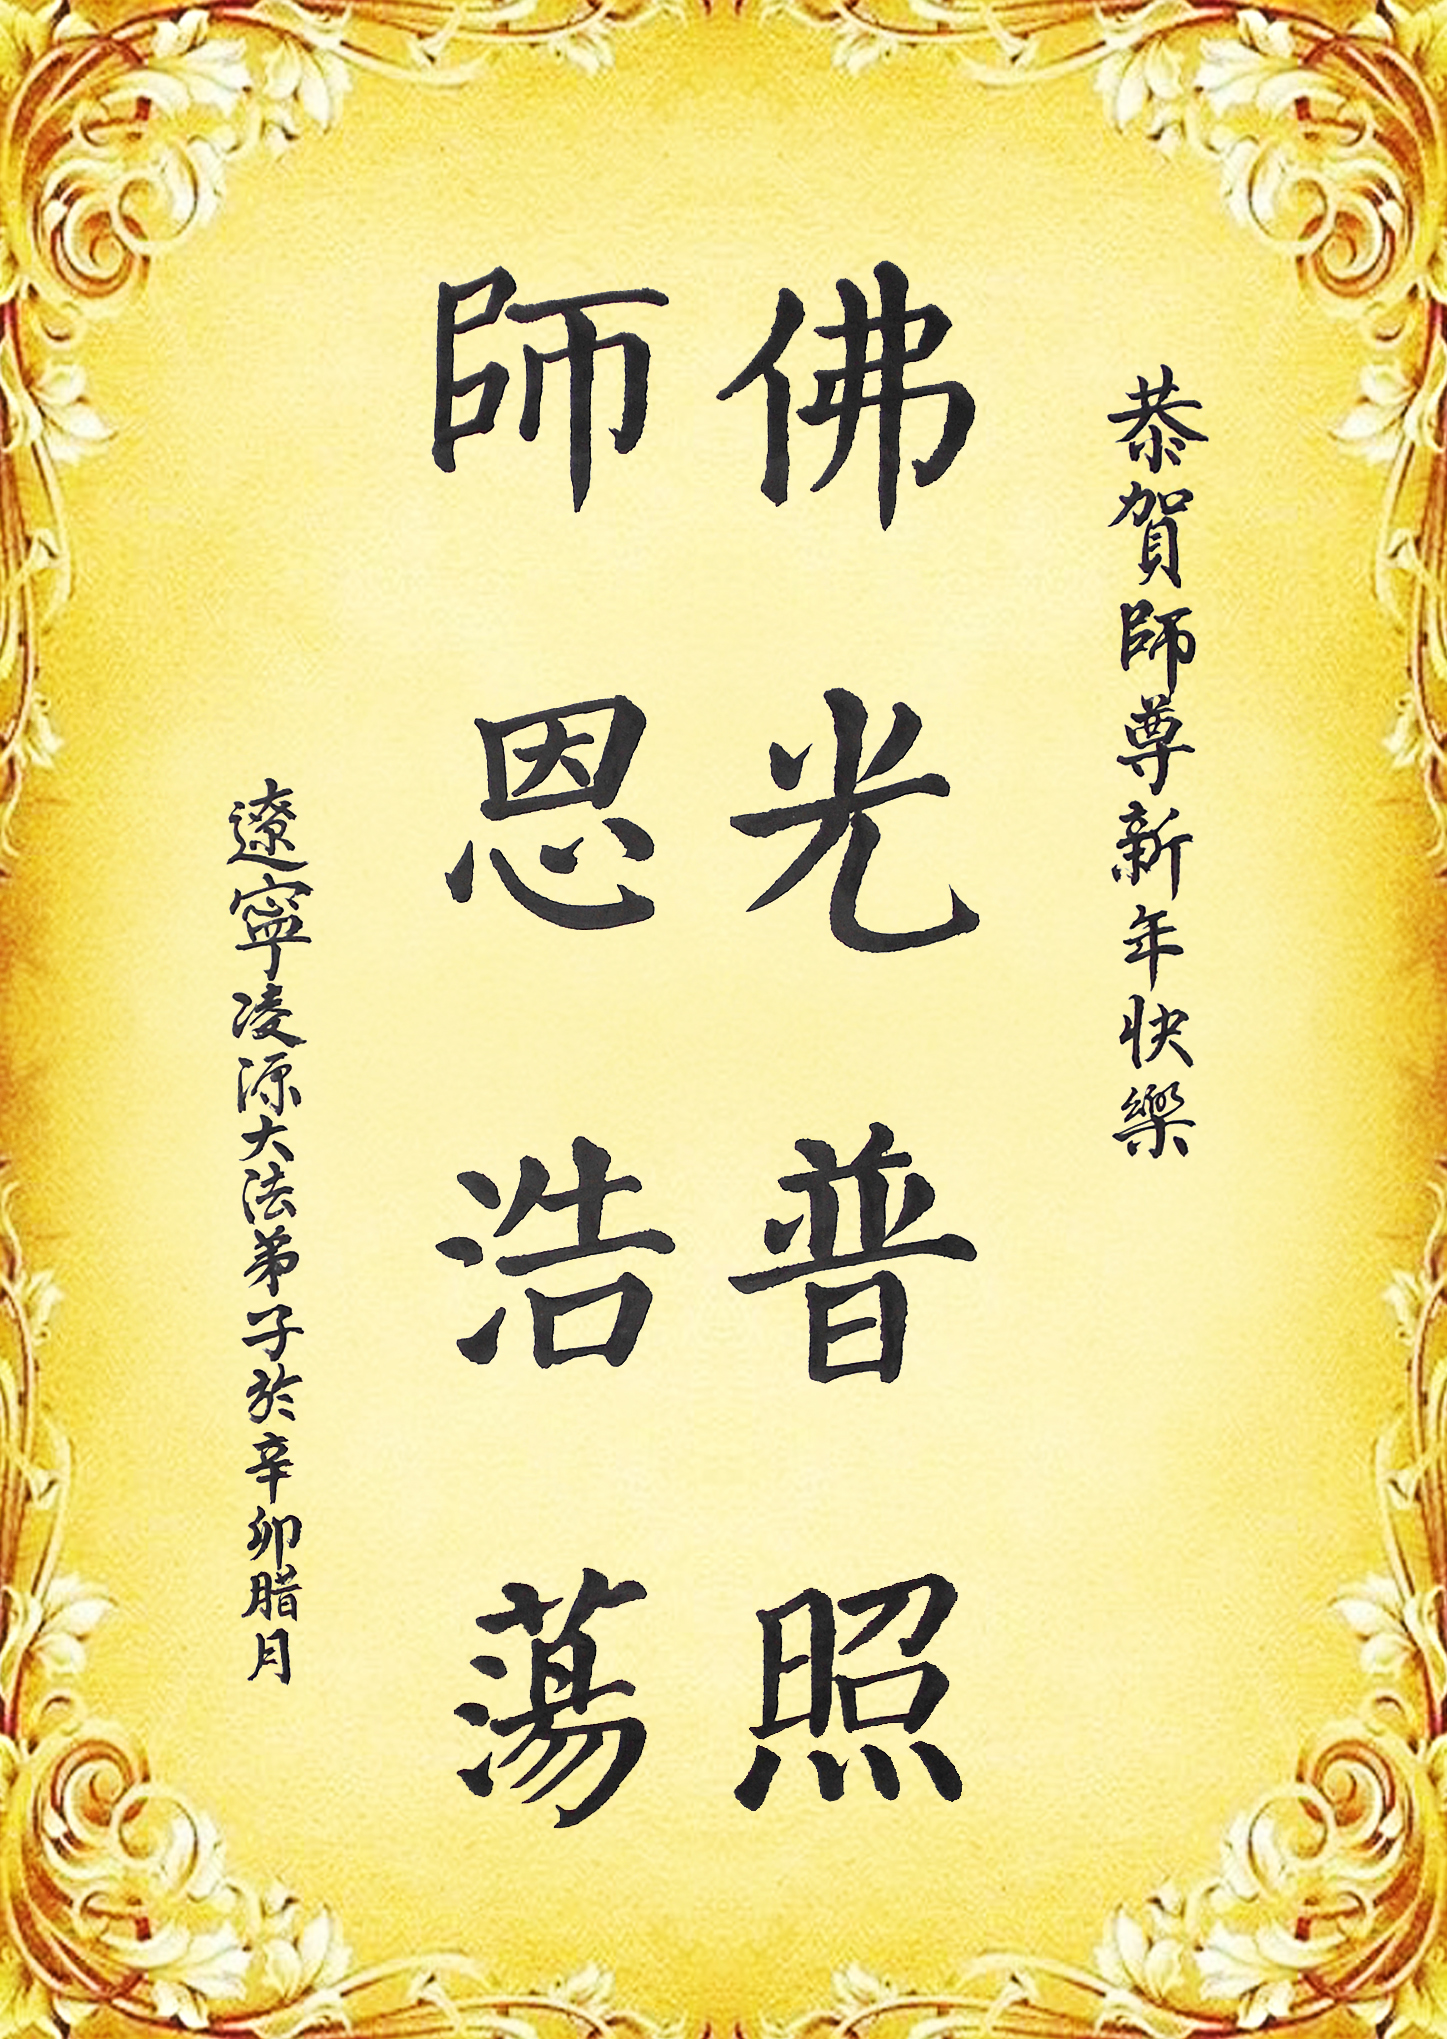 恭賀師尊新年快樂
佛光普照
師恩浩蕩
遼寧凌源大法弟子於辛卯腊月